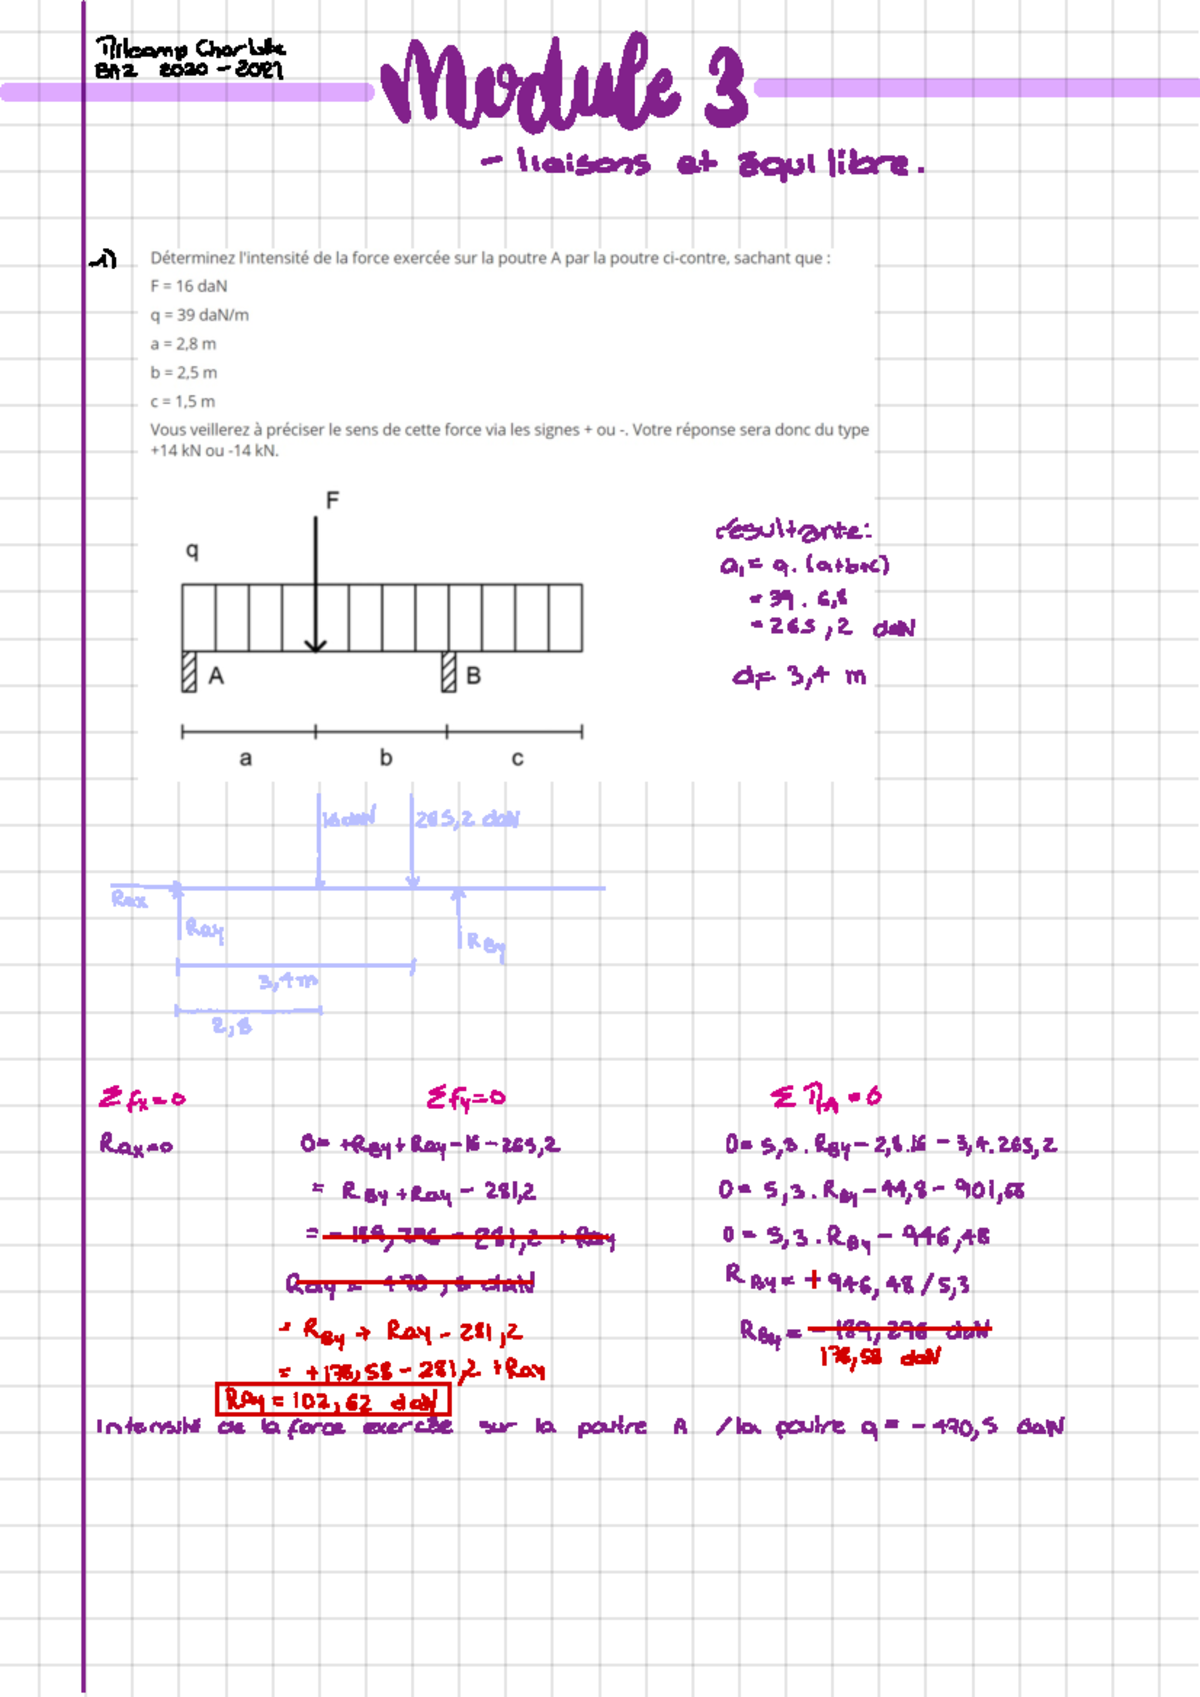 BA2 2020-2021
Module 3
- liaisons et équilibre.
1)
Déterminez l'intensité de la force exercée sur la poutre A par la poutre ci-contre, sachant que :
F = 16 daN
q = 39 daN/m
a = 2,8 m
b = 2,5 m
c = 1,5 m
Vous veillerez à préciser le sens de cette force via les signes + ou -. Votre réponse sera donc du type
+14 kN ou -14 kN.
F
q
A
B
a
b
c
résultante:
Q₁ = q. (a+b+c)
= 39 . 6,8
= 265,2 daN
d₁= 3,4 m
16 daN
265,2 daN
Rax
Ray
RBy
3,4m
2,8
Σ fx = 0
Rax=0
Σfy=0
0= +RBy + Ray - 16 - 265,2
= RBy + Ray - 281,2
= - 189,296 - 281,2 + Ray
Ray = 470,5 daN
= RBy + Ray - 281,2
= +178,58 - 281,2 + Ray
RAy = 102,62 daN
Σ MA = 0
0= 5,3 . RBy - 2,8.16 - 3,4.265,2
0= 5,3 . RBy - 44,8 - 901,68
0 = 5,3 . RBy - 946,48
RBy = + 946,48 / 5,3
RBy = - 189,296 daN
178,58 daN
Intensité de la force exercée sur la poutre A / la poutre q = - 470,5 daN